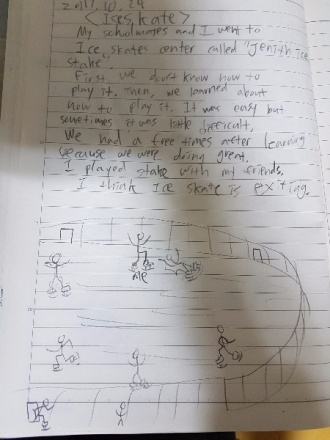 2017. 10. 29
<Ises, kate>
My schoolmates and I went to
Ice skates center called "Jenith Ice
skate".
First, we don't know how to
play it. Then, we learned about
how to play it. It was easy but
sometimes it was little difficult.
We had a free times after learning
because we were doing great.
I played skate with my friends.
I think Ice skate is exiting.
me